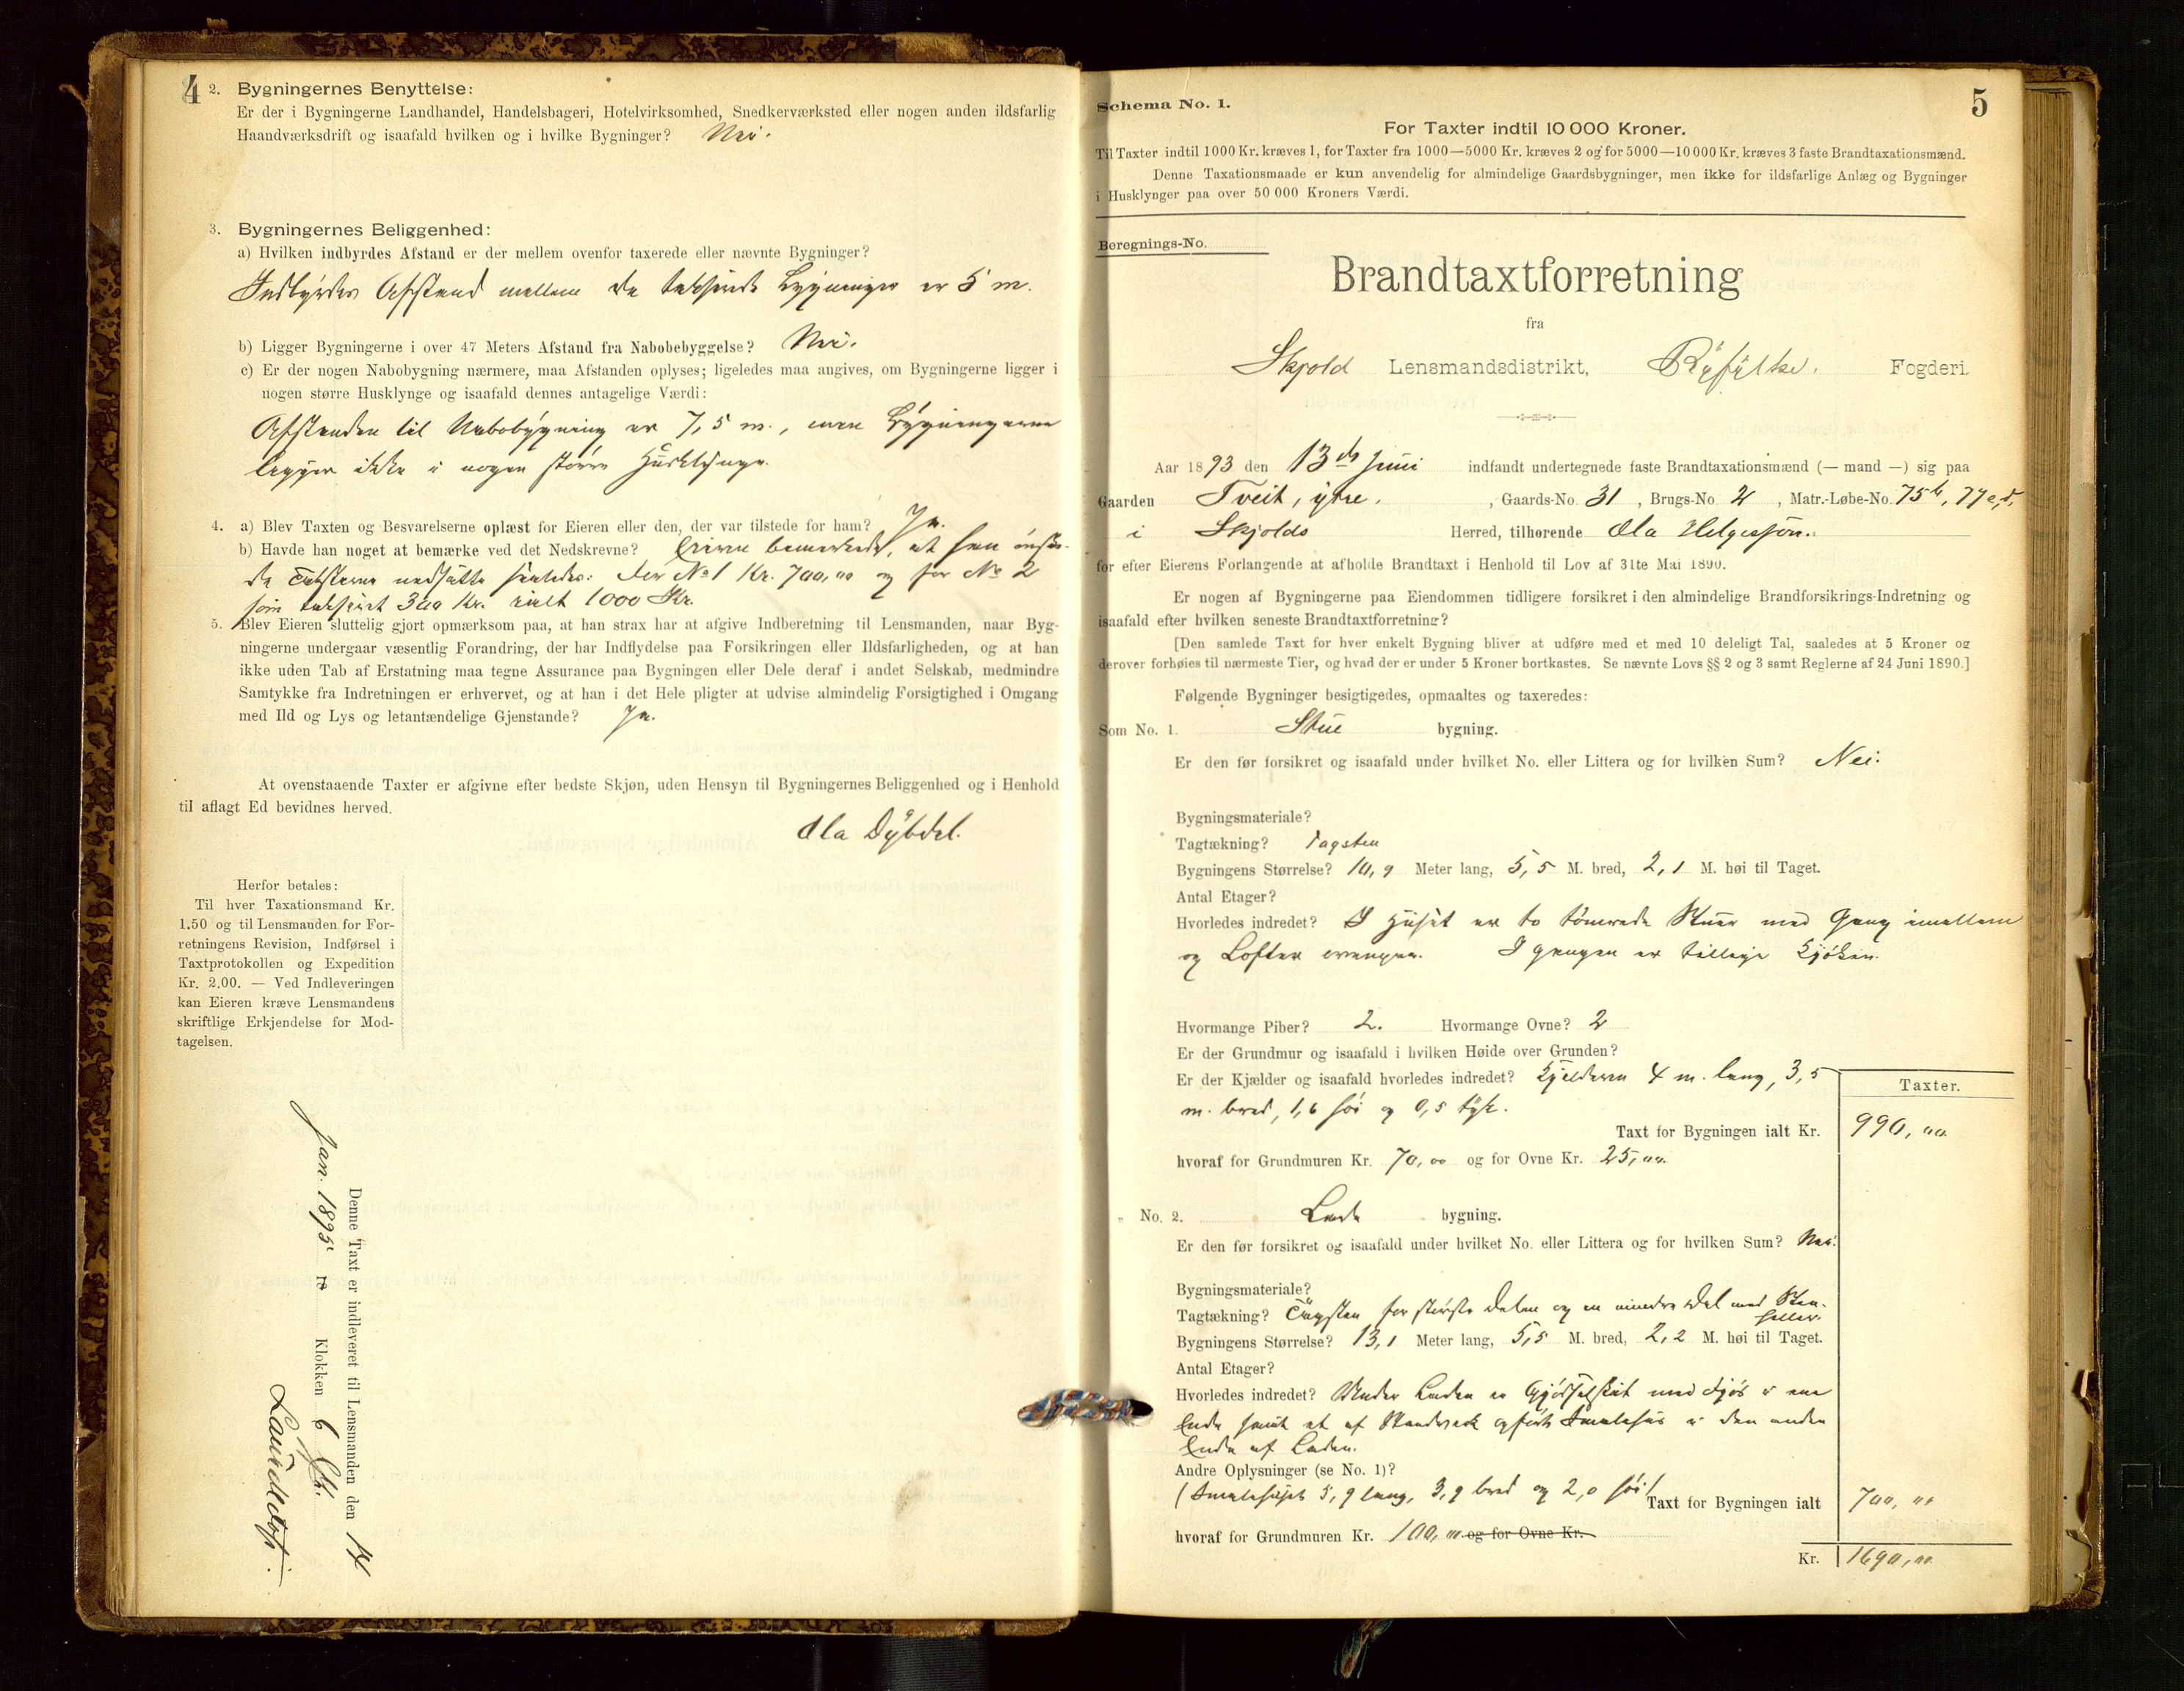 4
2. Bygningernes Benyttelse:
Er der i Bygningerne Landhandel, Handelsbageri, Hotelvirksomhed, Snedkerværksted eller nogen anden ildsfarlig
Haandværksdrift og isaafald hvilken og i hvilke Bygninger? Nei.
3. Bygningernes Beliggenhed:
a) Hvilken indbyrdes Afstand er der mellem ovenfor taxerede eller nævnte Bygninger?
Indbyrdes Afstand mellem de taksirede Bygninger er 5 m.
b) Ligger Bygningerne i over 47 Meters Afstand fra Nabobebyggelse? Nei.
c) Er der nogen Nabobygning nærmere, maa Afstanden oplyses; ligeledes maa angives, om Bygningerne ligger i
nogen større Husklynge og isaafald dennes antagelige Værdi:
Afstanden til Nabobygning er 7,5 m., men Bygningerne
ligger ikke i nogen større Husklynge.
4. a) Blev Taxten og Besvarelserne oplæst for Eieren eller den, der var tilstede for ham? Ja.
b) Havde han noget at bemærke ved det Nedskrevne? Eieren bemerkede, at han ønske-
de Taksterne nedsatte saaledes: For No 1 Kr. 700,00 og for No 2
som taksirt 300 Kr. ialt 1000 Kr.
5. Blev Eieren sluttelig gjort opmærksom paa, at han strax har at afgive Indberetning til Lensmanden, naar Byg-
ningerne undergaar væsentlig Forandring, der har Indflydelse paa Forsikringen eller Ildsfarligheden, og at han
ikke uden Tab af Erstatning maa tegne Assurance paa Bygningen eller Dele deraf i andet Selskab, medmindre
Samtykke fra Indretningen er erhvervet, og at han i det Hele pligter at udvise almindelig Forsigtighed i Omgang
med Ild og Lys og letantændelige Gjenstande? Ja.
At ovenstaaende Taxter er afgivne efter bedste Skjøn, uden Hensyn til Bygningernes Beliggenhed og i Henhold
til aflagt Ed bevidnes herved.
Ola Dybdal.
Herfor betales:
Til hver Taxationsmand Kr.
1.50 og til Lensmanden for For-
retningens Revision, Indførsel i
Taxtprotokollen og Expedition
Kr. 2.00. — Ved Indleveringen
kan Eieren kræve Lensmandens
skriftlige Erkjendelse for Mod-
tagelsen.
Denne Taxt er indleveret til Lensmanden den 14
Jan. 1895 Klokken 6
5
Schema No. 1.
For Taxter indtil 10 000 Kroner.
Til Taxter indtil 1000 Kr. kræves 1, for Taxter fra 1000—5000 Kr. kræves 2 og for 5000—10 000 Kr. kræves 3 faste Brandtaxationsmænd.
Denne Taxationsmaade er kun anvendelig for almindelige Gaardsbygninger, men ikke for ildsfarlige Anlæg og Bygninger
i Husklynger paa over 50 000 Kroners Værdi.
Beregnings-No.
Brandtaxtforretning
fra
Skjold Lensmandsdistrikt, Ryfylke. Fogderi.
Aar 1893 den 13de Juni indfandt undertegnede faste Brandtaxationsmænd (— mand —) sig paa
Gaarden Tveit, ytre. , Gaards-No. 31 , Brugs-No. 2 , Matr.-Løbe-No. 75b, 77c,d,
i Skjolds Herred, tilhørende Ola Helgesson.
for efter Eierens Forlangende at afholde Brandtaxt i Henhold til Lov af 31te Mai 1890.
Er nogen af Bygningerne paa Eiendommen tidligere forsikret i den almindelige Brandforsikrings-Indretning og
isaafald efter hvilken seneste Brandtaxtforretning?
[Den samlede Taxt for hver enkelt Bygning bliver at udføre med et med 10 deleligt Tal, saaledes at 5 Kroner og
derover forhøies til nærmeste Tier, og hvad der er under 5 Kroner bortkastes. Se nævnte Lovs §§ 2 og 3 samt Reglerne af 24 Juni 1890.]
Følgende Bygninger besigtigedes, opmaaltes og taxeredes:
Som No. 1. Stue bygning.
Er den før forsikret og isaafald under hvilket No. eller Littera og for hvilken Sum? Nei.
Bygningsmateriale?
Tagtækning? Tagsten
Bygningens Størrelse? 10,9 Meter lang, 5,5 M. bred, 2,1 M. høi til Taget.
Antal Etager?
Hvorledes indredet? I Huset er to tømrede Stuer med Gang imellem
og Lofter ovenpaa. I gangen er tillige Kjøken.
Hvormange Piber? 2. Hvormange Ovne? 2
Er der Grundmur og isaafald i hvilken Høide over Grunden?
Er der Kjælder og isaafald hvorledes indredet? Kjelderen 4 m. lang, 3,5
m. bred, 1,6 høi og 0,5 tyk.
Taxter.
Taxt for Bygningen ialt Kr. 990,00
hvoraf for Grundmuren Kr. 70,00 og for Ovne Kr. 25,00
„ No. 2. Lade bygning.
Er den før forsikret og isaafald under hvilket No. eller Littera og for hvilken Sum? Nei.
Bygningsmateriale?
Tagtækning? Tagsten for største Delen og en mindre Del med Sten-
heller.
Bygningens Størrelse? 13,1 Meter lang, 5,5 M. bred, 2,2 M. høi til Taget.
Antal Etager?
Hvorledes indredet? Under Laden er Gjødselskut med Fjøs i ene
Ende samt et af Standværk opført Smalehus i den anden
Ende af Laden.
Andre Oplysninger (se No. 1)?
(Smalehuset 5,9 lang, 3,9 bred og 2,0 høi) Taxt for Bygningen ialt 700,00
hvoraf for Grundmuren Kr. 100,00 og for Ovne Kr.
Kr. 1690,00